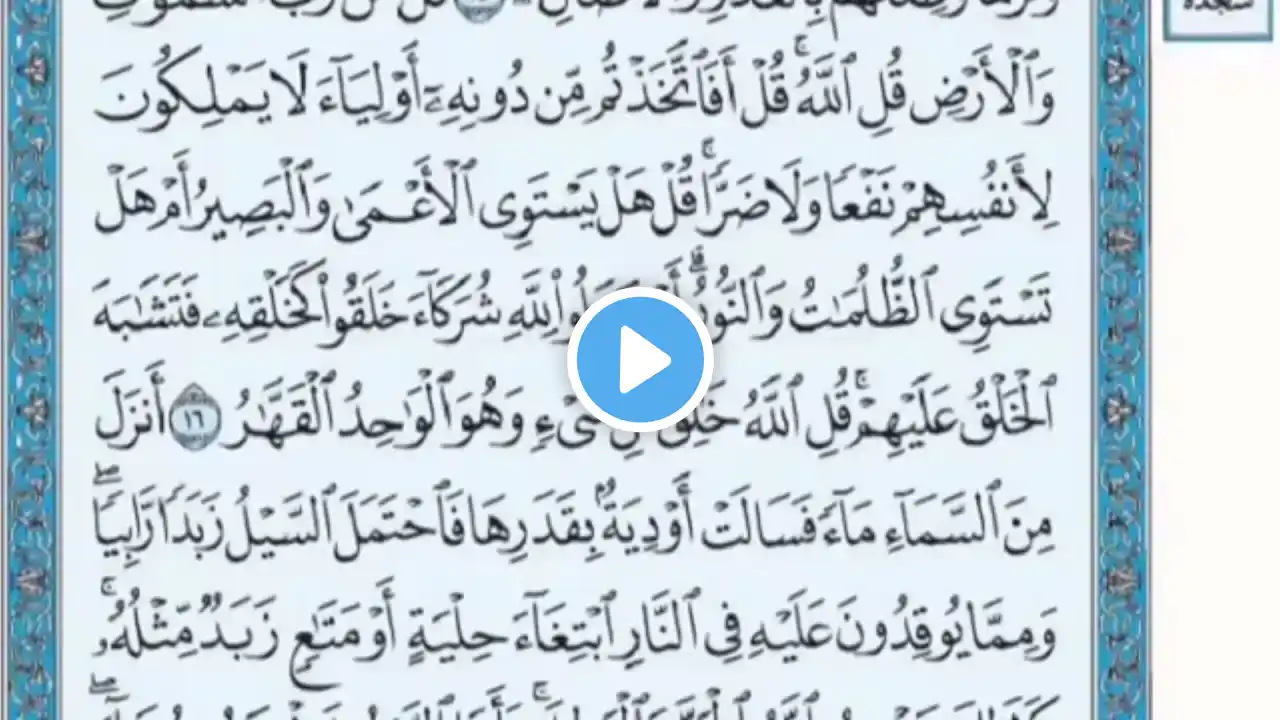 وَٱلْأَرْضِ قُلِ ٱللَّهُ ۚ قُلْ أَفَٱتَّخَذْتُم مِّن دُونِهِۦٓ أَوْلِيَآءَ لَا يَمْلِكُونَ
لِأَنفُسِهِمْ نَفْعًا وَلَا ضَرًّا ۚ قُلْ هَلْ يَسْتَوِى ٱلْأَعْمَىٰ وَٱلْبَصِيرُ أَمْ هَلْ
تَسْتَوِى ٱلظُّلُمَٰتُ وَٱلنُّورُ ۗ لِلَّهِ شُرَكَآءَ خَلَقُوا۟ كَخَلْقِهِۦ فَتَشَٰبَهَ
ٱلْخَلْقُ عَلَيْهِمْ ۚ قُلِ ٱللَّهُ خَٰلِقُ شَىْءٍ وَهُوَ ٱلْوَٰحِدُ ٱلْقَهَّٰرُ ١٦ أَنزَلَ
مِنَ ٱلسَّمَآءِ مَآءً فَسَالَتْ أَوْدِيَةٌۢ بِقَدَرِهَا فَٱحْتَمَلَ ٱلسَّيْلُ زَبَدًا رَّابِيًا ۖ
وَمِمَّا يُوقِدُونَ عَلَيْهِ فِى ٱلنَّارِ ٱبْتِغَآءَ حِلْيَةٍ أَوْ مَتَٰعٍ زَبَدٌ مِّثْلُهُۥ ۚ